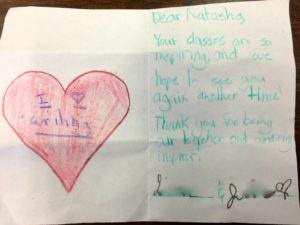 I ♥
writing
Dear Natasha,
Your classes are so
inspiring, and we
hope to see you
again another time!
Thank you for being
our together and amazing
inspirer.
&